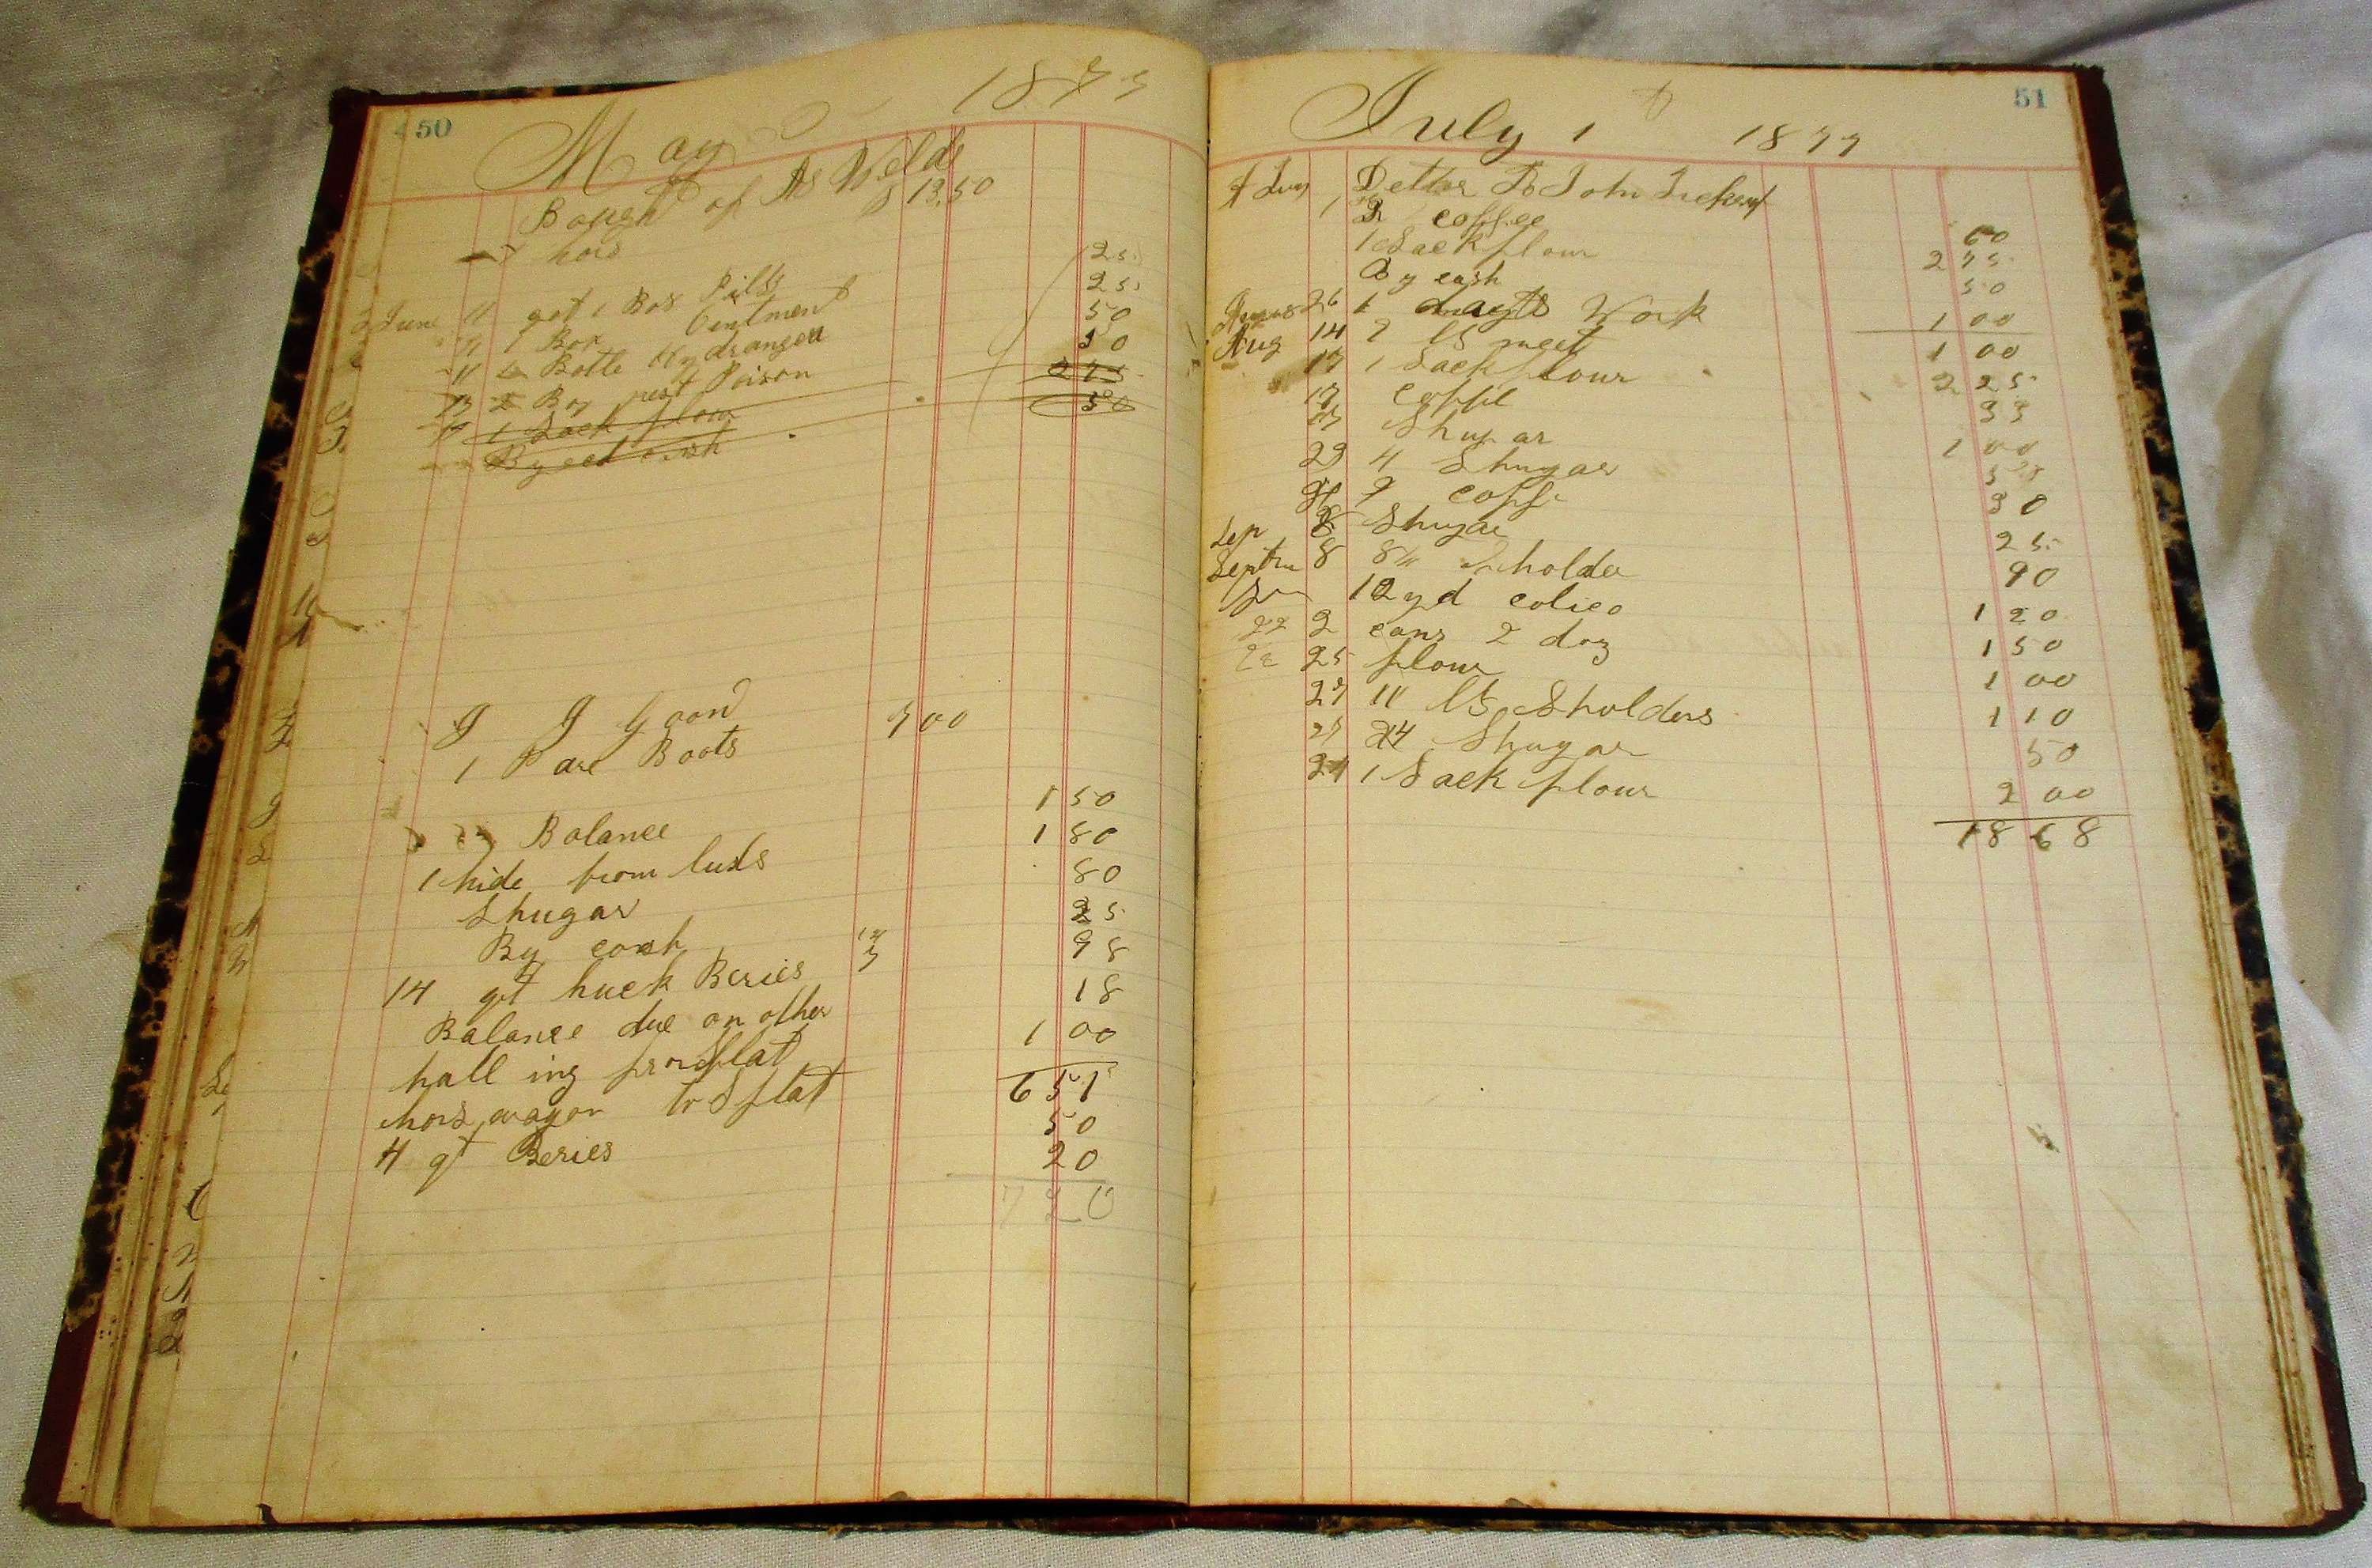 50
May 1877
Bought of As Welds
hors $ 13.50
June 11 got 1 Box Pills 25
11 1 Box Ointment 25
11 Botle Hydrangea 50
13 Box rest Poison 30
1 Sack flour 275
By cash 50
J J Good
1 Pare Boots 700
Balance 150
1 hide from 180
Shugar 80
By cash 25
14 qt huck Beries 7 98
Balance due on other 18
hall ing from flat 100
651
hors wagon to flat 50
4 qt Beries 20
720
51
July 1 1877
Detter To John
1 2 coffee 60
1 Sack flour 275
By cash 50
26 1 days Work 100
Aug 14 7 lbs meet 100
17 1 Sack flour 225
17 coffe 33
Shugar 100
29 4 Shugar
coffe 30
Sep 8 Shugar 25
Septm 8 8 lb Sholder 90
12 yd colico 120
22 2 cans 2 doz 150
25 flour 100
27 11 lbs Sholders 110
Shugar 50
1 Sack flour 200
1868